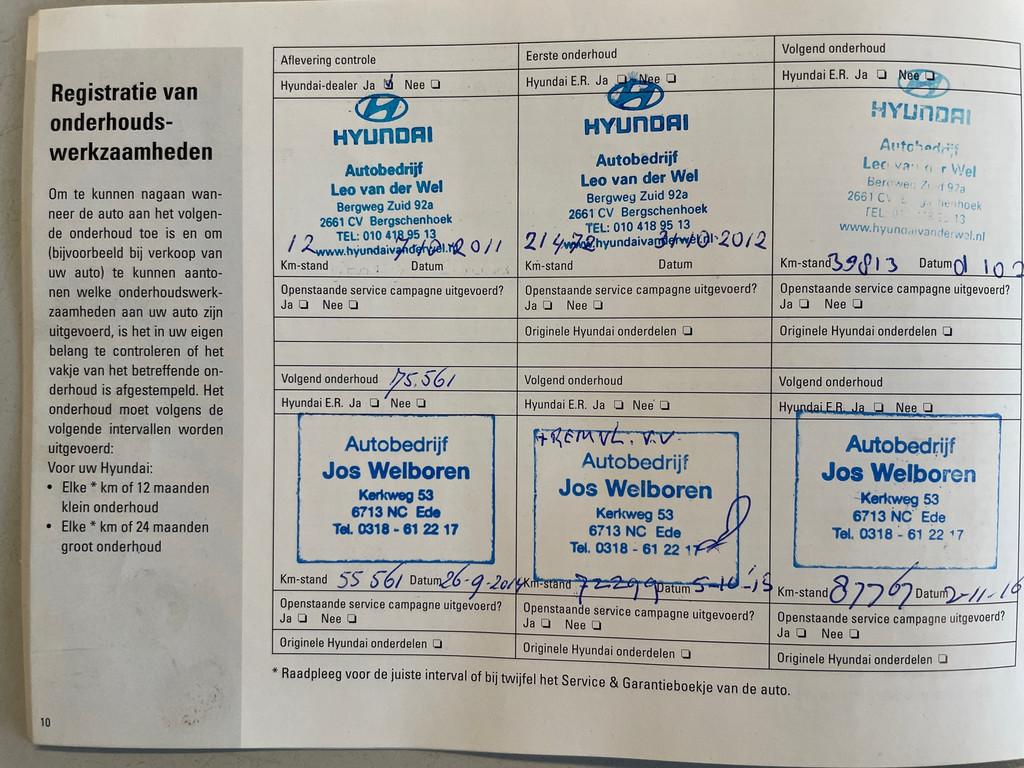 Registratie van
onderhouds-
werkzaamheden
Om te kunnen nagaan wan-
neer de auto aan het volgen-
de onderhoud toe is en om
(bijvoorbeeld bij verkoop van
uw auto) te kunnen aanto-
nen welke onderhoudswerk-
zaamheden aan uw auto zijn
uitgevoerd, is het in uw eigen
belang te controleren of het
vakje van het betreffende on-
derhoud is afgestempeld. Het
onderhoud moet volgens de
volgende intervallen worden
uitgevoerd:
Voor uw Hyundai:
• Elke * km of 12 maanden
klein onderhoud
• Elke * km of 24 maanden
groot onderhoud
10
Aflevering controle
Hyundai-dealer Ja Nee
HYUNDAI
Autobedrijf
Leo van der Wel
Bergweg Zuid 92a
2661 CV Bergschenhoek
TEL: 010 418 95 13
www.hyundaivanderwel.nl
12 2011
Km-stand Datum
Openstaande service campagne uitgevoerd?
Ja Nee
Eerste onderhoud
Hyundai E.R. Ja Nee
HYUNDAI
Autobedrijf
Leo van der Wel
Bergweg Zuid 92a
2661 CV Bergschenhoek
TEL: 010 418 95 13
www.hyundaivanderwel.nl
21472 2012
Km-stand Datum
Openstaande service campagne uitgevoerd?
Ja Nee
Originele Hyundai onderdelen
Volgend onderhoud
Hyundai E.R. Ja Nee
HYUNDAI
Autobedrijf
Leo van der Wel
Bergweg Zuid 92a
2661 CV Bergschenhoek
TEL: 13
www.hyundaivanderwel.nl
Km-stand 39813 Datum
Openstaande service campagne uitgevoerd?
Ja Nee
Originele Hyundai onderdelen
Volgend onderhoud 75.561
Hyundai E.R. Ja Nee
Autobedrijf
Jos Welboren
Kerkweg 53
6713 NC Ede
Tel. 0318 - 61 22 17
Km-stand 55561 Datum 26-9-2014
Openstaande service campagne uitgevoerd?
Ja Nee
Originele Hyundai onderdelen
Volgend onderhoud
Hyundai E.R. Ja Nee
+REMVL. V.V.
Autobedrijf
Jos Welboren
Kerkweg 53
6713 NC Ede
Tel. 0318 - 61 22 17
Km-stand 72299 Datum 5-10-15
Openstaande service campagne uitgevoerd?
Ja Nee
Originele Hyundai onderdelen
Volgend onderhoud
Hyundai E.R. Ja Nee
Autobedrijf
Jos Welboren
Kerkweg 53
6713 NC Ede
Tel. 0318 - 61 22 17
Km-stand 87767 Datum 2-11-16
Openstaande service campagne uitgevoerd?
Ja Nee
Originele Hyundai onderdelen
* Raadpleeg voor de juiste interval of bij twijfel het Service & Garantieboekje van de auto.